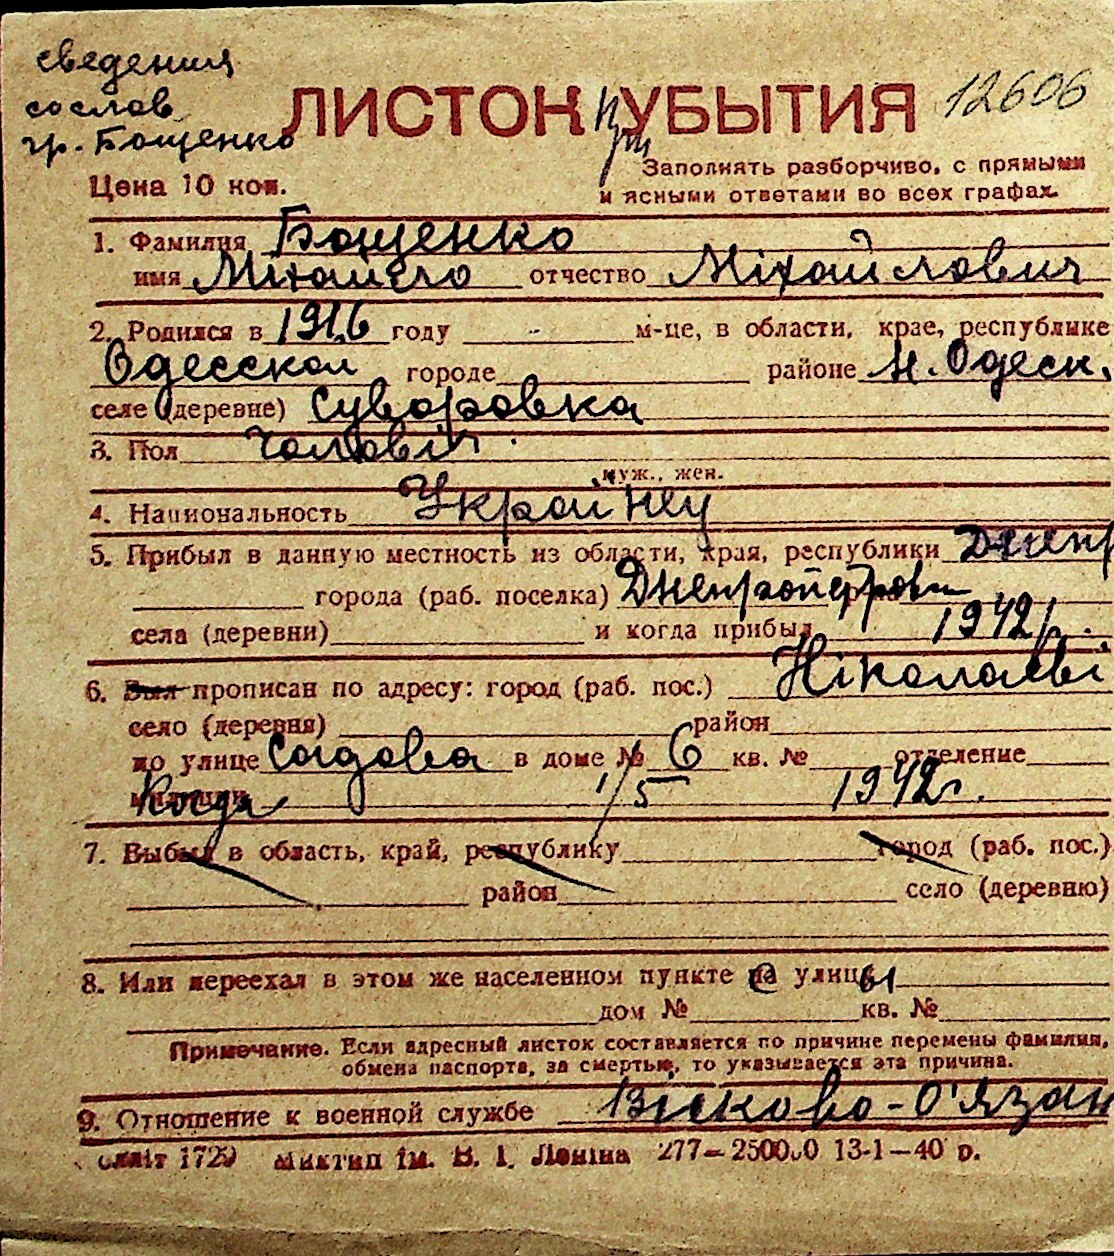 сведения
со слов
гр. Бощенко
12606
ЛИСТОК при УБЫТИЯ
Цена 10 коп.
Заполнять разборчиво, с прямыми
и ясными ответами во всех графах.
1. Фамилия Бощенко
имя Міхайло отчество Міхайлович
2. Родился в 1916 году - м-це, в области, крае, республике
Одесской городе районе Н. Одеск.
селе (деревне) Суворовка
3. Пол чоловіч.
муж., жен.
4. Национальность Україней
5. Прибыл в данную местность из области, края, республики Днепр
города (раб. поселка) Днепропетровск
села (деревни) и когда прибыл 1942 р.
6. Был прописан по адресу: город (раб. пос.) Ніколаєві
село (деревня) район
по улице Садова в доме № 6 кв. № отделение
милиции Когда 1/5 1942 г.
7. Выбыл в область, край, республику город (раб. пос.)
район село (деревню)
8. Или переехал в этом же населенном пункте с улицы
дом № кв. №
Примечание. Если адресный листок составляется по причине перемены фамилии,
обмена паспорта, за смертью, то указывается эта причина.
9. Отношение к военной службе Військово-О'язан
1729 Миктип ім. В. І. Леніна 277—250000 13-1—40 р.